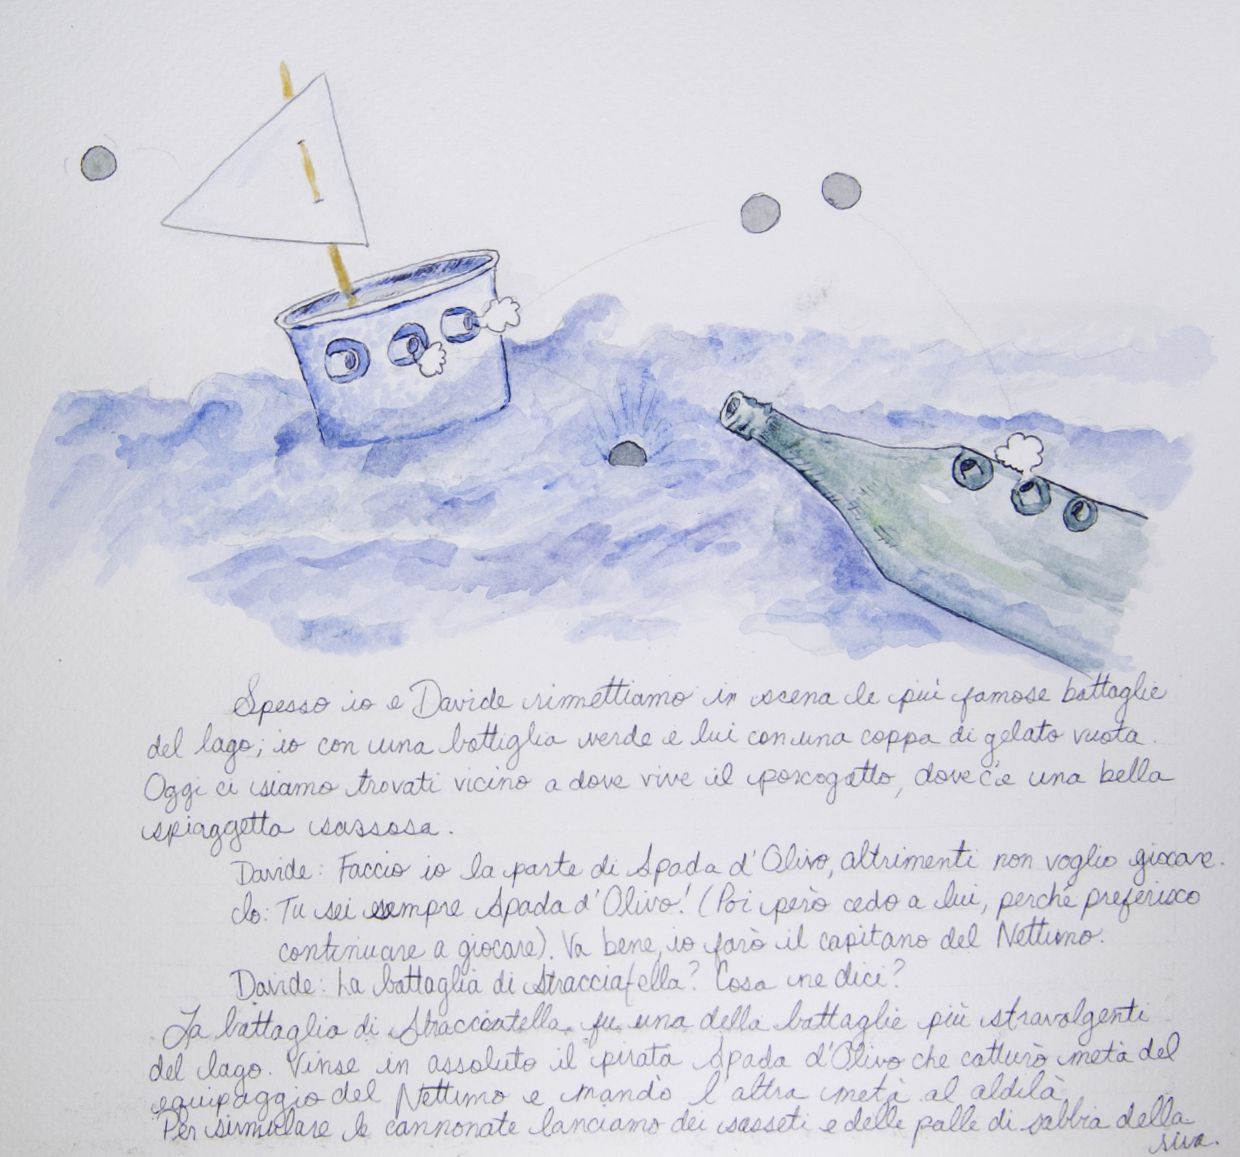 Spesso io e Davide rimettiamo in scena le più famose battaglie
del lago; io con una bottiglia verde e lui con una coppa di gelato vuota.
Oggi ci siamo trovati vicino a dove vive il porcogatto, dove c'è una bella
spiaggetta sassosa.
Davide: Faccio io la parte di Spada d'Olivo, altrimenti non voglio giocare.
Io: Tu sei sempre Spada d'Olivo! (Poi però cedo a lui, perché preferisco
continuare a giocare). Va bene, io farò il capitano del Nettuno.
Davide: La battaglia di Stracciatella? Cosa ne dici?
La battaglia di Stracciatella fu una della battaglie più stravolgenti
del lago. Vinse in assoluto il pirata Spada d'Olivo che catturò metà del
equipaggio del Nettuno e mandò l'altra metà al aldilà.
Per simulare le cannonate lanciamo dei sasseti e delle palle di sabbia della
riva.